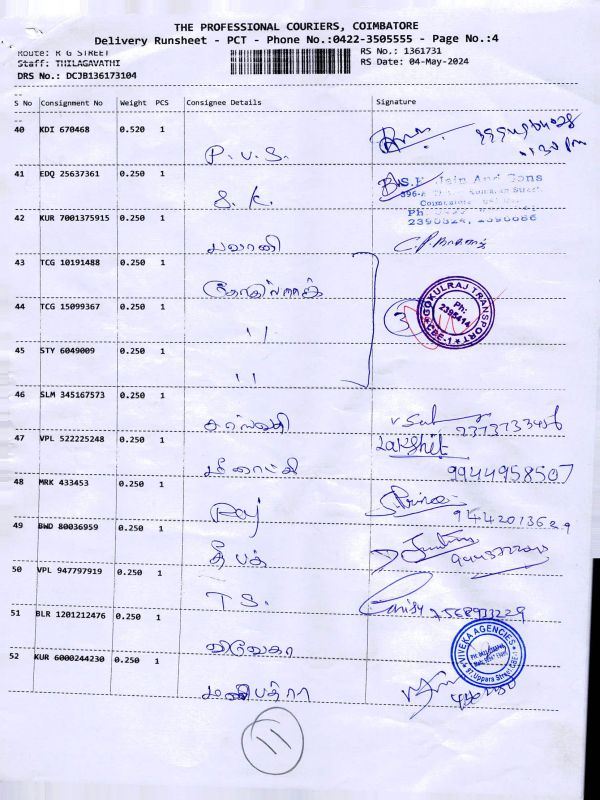 THE PROFESSIONAL COURIERS, COIMBATORE
Delivery Runsheet - PCT - Phone No.:0422-3505555 - Page No.:4
Route: R G STREET
Staff: THILAGAVATHI
DRS No.: DCJB136173104
RS No.: 1361731
RS Date: 04-May-2024
S No Consignment No Weight PCS Consignee Details Signature
40 KDI 670468 0.520 1 P.V.S.
41 EDQ 25637361 0.250 1 S.K. Jain And Sons
Ph
42 KUR 7001375915 0.250 1 பவானி
43 TCG 10191488 0.250 1 கோகுல்ராஜ்
44 TCG 15099367 0.250 1 " 3 GOKULRAJ TRANSPORT Ph: 2395414 CBE-1
45 STY 6049009 0.250 1 "
46 SLM 345167573 0.250 1
47 VPL 522225248 0.250 1 மீனாட்சி Lakshit 9944958507
48 MRK 433453 0.250 1 Raj Prince
49 BWD 80036959 0.250 1 தீபக்
50 VPL 947797919 0.250 1 T S.
51 BLR 1201212476 0.250 1 விவேகா VIVEKA AGENCIES
52 KUR 6000244230 0.250 1 மணிபத்ரா
11